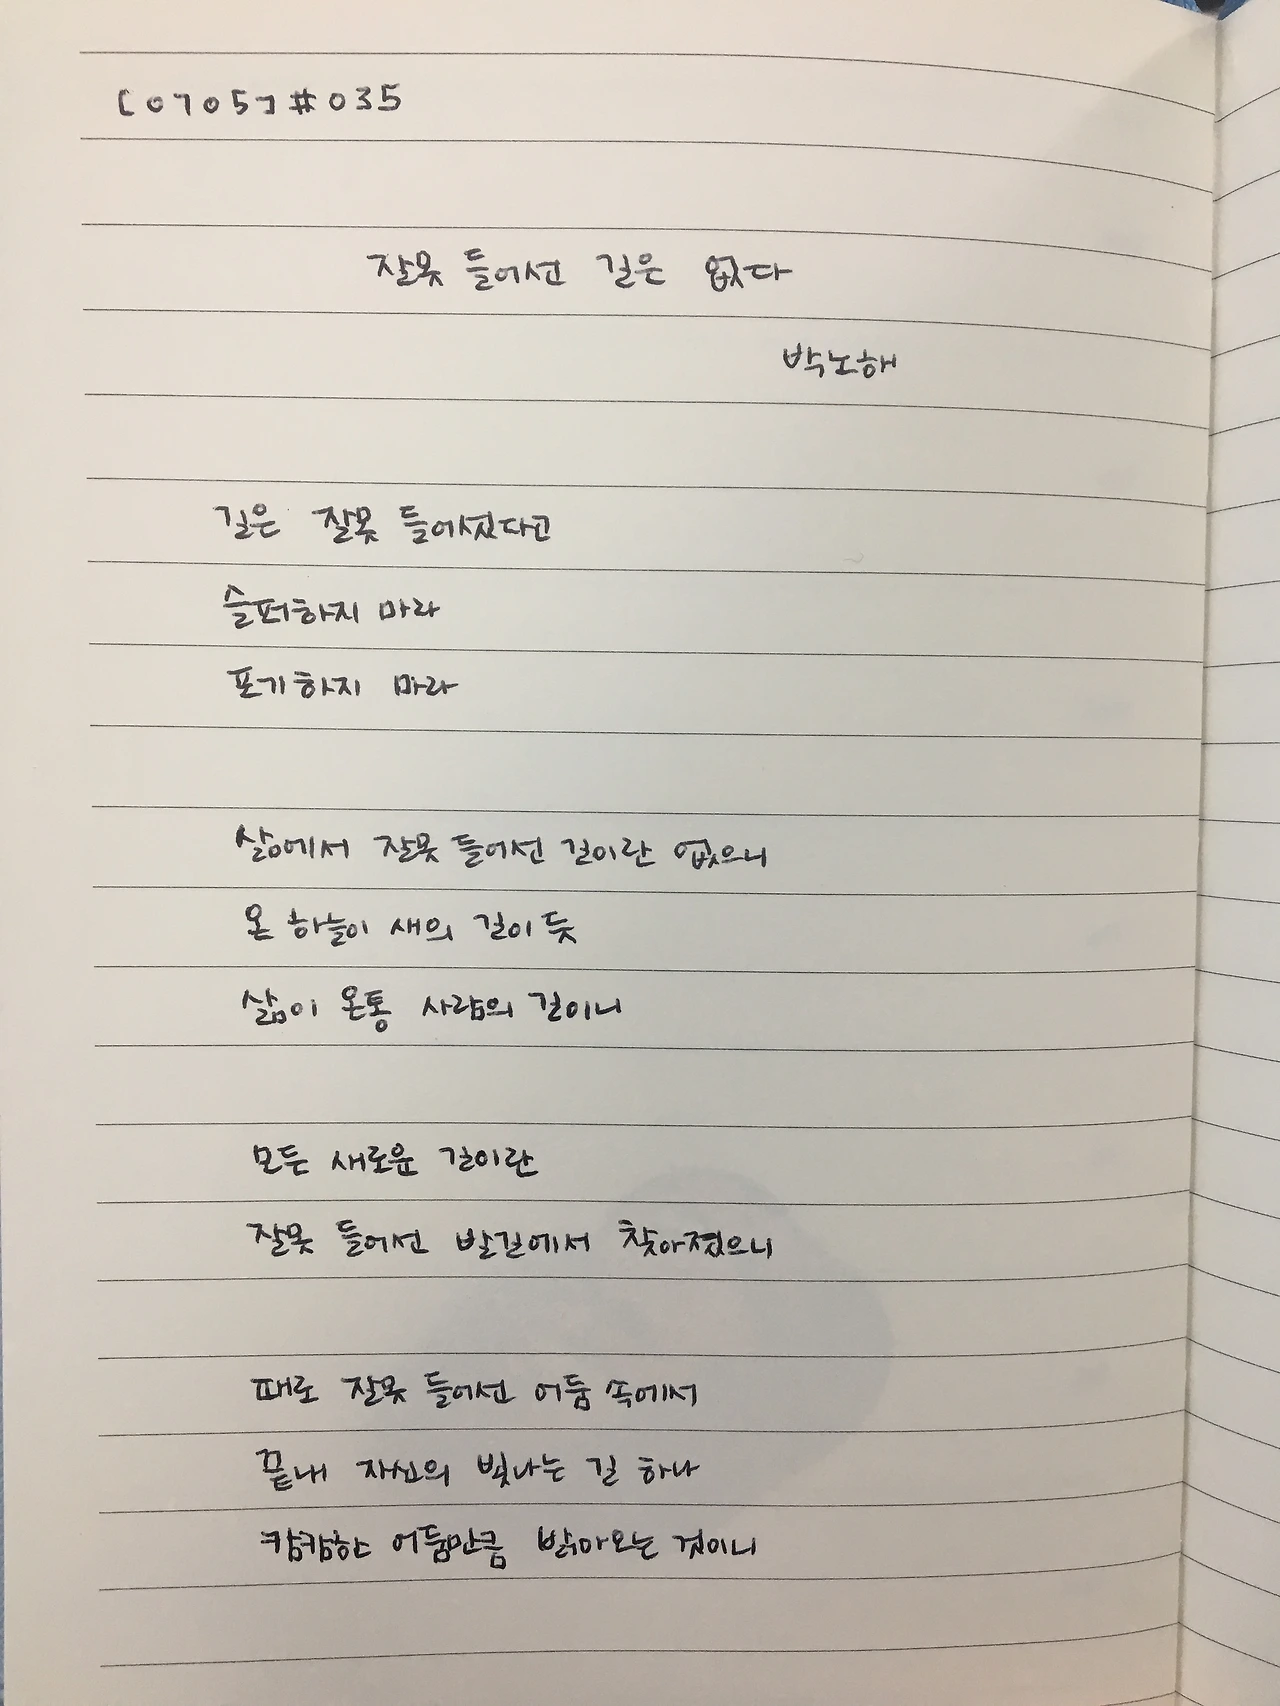 [0705] #035
잘못 들어선 길은 없다
박노해
길은 잘못 들어섰다고
슬퍼하지 마라
포기하지 마라
삶에서 잘못 들어선 길이란 없으니
온 하늘이 새의 길이듯
삶이 온통 사람의 길이니
모든 새로운 길이란
잘못 들어선 발길에서 찾아졌으니
때로 잘못 들어선 어둠 속에서
끝내 자신의 빛나는 길 하나
캄캄한 어둠만큼 밝아오는 것이니